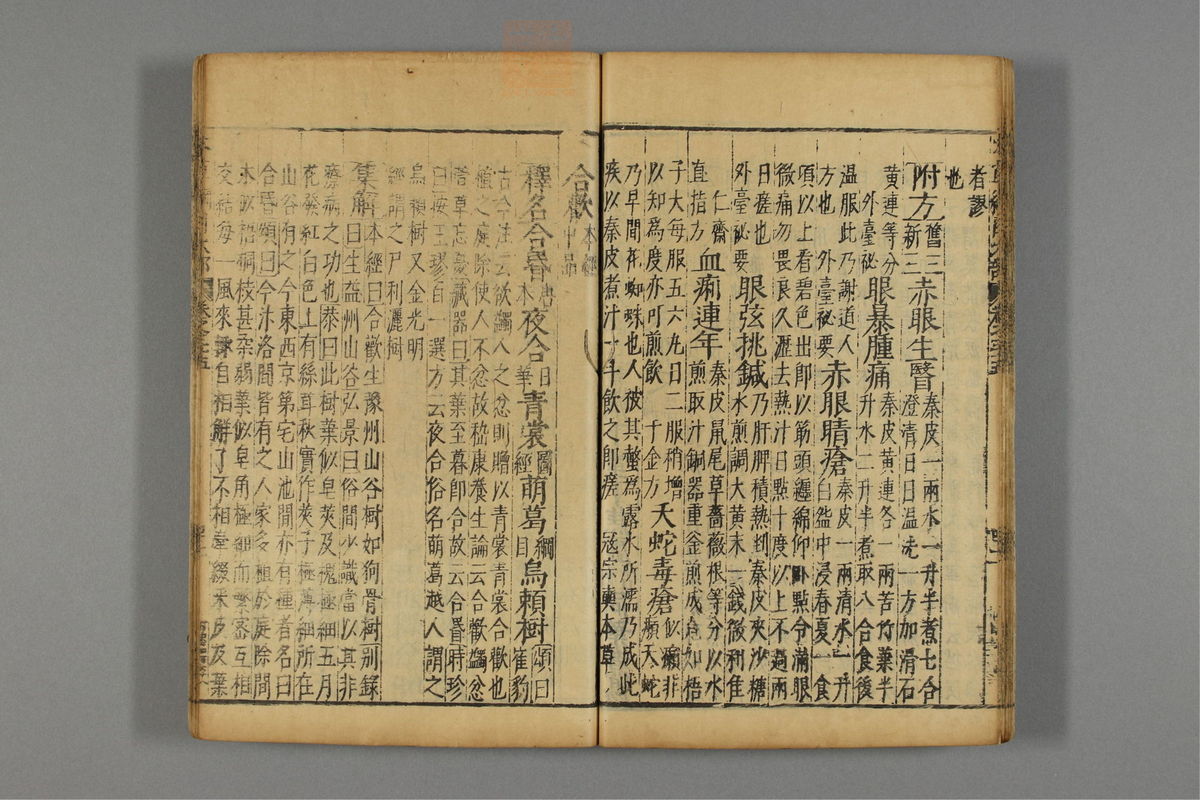 者謬
也
附方舊三新三赤眼生瞖秦皮一兩水一升半煮七合澄清日日溫洗一方加滑石
黃連等分外臺祕眼暴腫痛秦皮黃連各一兩苦竹葉半升水二升半煮取八合食後
溫服此乃謝道人方也外臺祕要赤眼睛瘡秦皮一兩清水一升白盌中浸春夏一食
頃以上看碧色出即以筯頭纏綿仰臥點令滿眼微痛勿畏良久瀝去熱汁日點十度以上不過兩
日瘥也外臺祕要眼弦挑鍼乃肝脾積熱剉秦皮夾沙糖水煎調大黃末一錢微利佳
仁齋直指方血痢連年秦皮鼠尾草薔薇根等分以水煎取汁銅器重釜煎成丸如梧
子大每服五六丸日二服稍增以知為度亦可煎飲千金方天蛇毒瘡似癩非癩天蛇
乃草間花蜘蛛也人被其螫為露水所濡乃成此疾以秦皮煮汁一斗飲之即瘥寇宗奭本草
合歡本經中品
釋名合昏唐本夜合日華青裳圖經萌葛綱目烏賴樹頌曰崔豹
古今注云欲蠲人之忿則贈以青裳青裳合歡也
植之庭除使人不忿故嵇康養生論云合歡蠲忿
萱草忘憂藏器曰其葉至暮即合故云合昏時珍
曰按王璆百一選方云夜合俗名萌葛越人謂之
烏賴樹又金光明
經謂之尸利灑樹
集解本經曰合歡生豫州山谷樹如狗骨樹別錄
曰生益州山谷弘景曰俗間少識當以其非
療病之功也恭曰此樹葉似皂莢及槐極細五月
花發紅白色上有絲茸秋實作莢子極薄細所在
山谷有之今東西京第宅山池間亦有種者名曰
合昏頌曰今汴洛間皆有之人家多植於庭除間
木似梧桐枝甚柔弱葉似皂角極細而繁密互相
交結每一風來輒自相解了不相牽綴采皮及葉